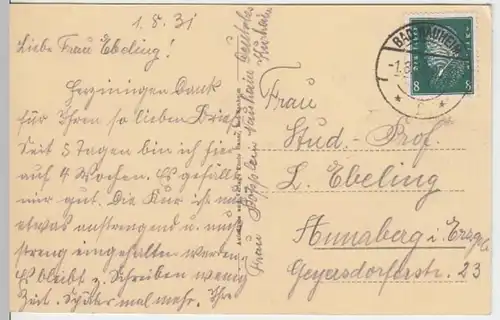 1.8.31
Liebe Frau Ebeling!
Herzinnigen Dank
für Ihren so lieben Brief.
Seit 5 Tagen bin ich hier
auf 4 Wochen. Es gefällt
mir gut. Die Kur ist nur
etwas anstrengend u. muß
streng eingehalten werden.
Es bleibt z. Schreiben wenig
Zeit. Später mal mehr. Ihre
Frau
Bad Nauheim
BAD NAUHEIM
-1.8
8
8
Frau
Stud.-Prof.
L. Ebeling
Annaberg i. Erzgeb.
Geyersdorferstr. 23